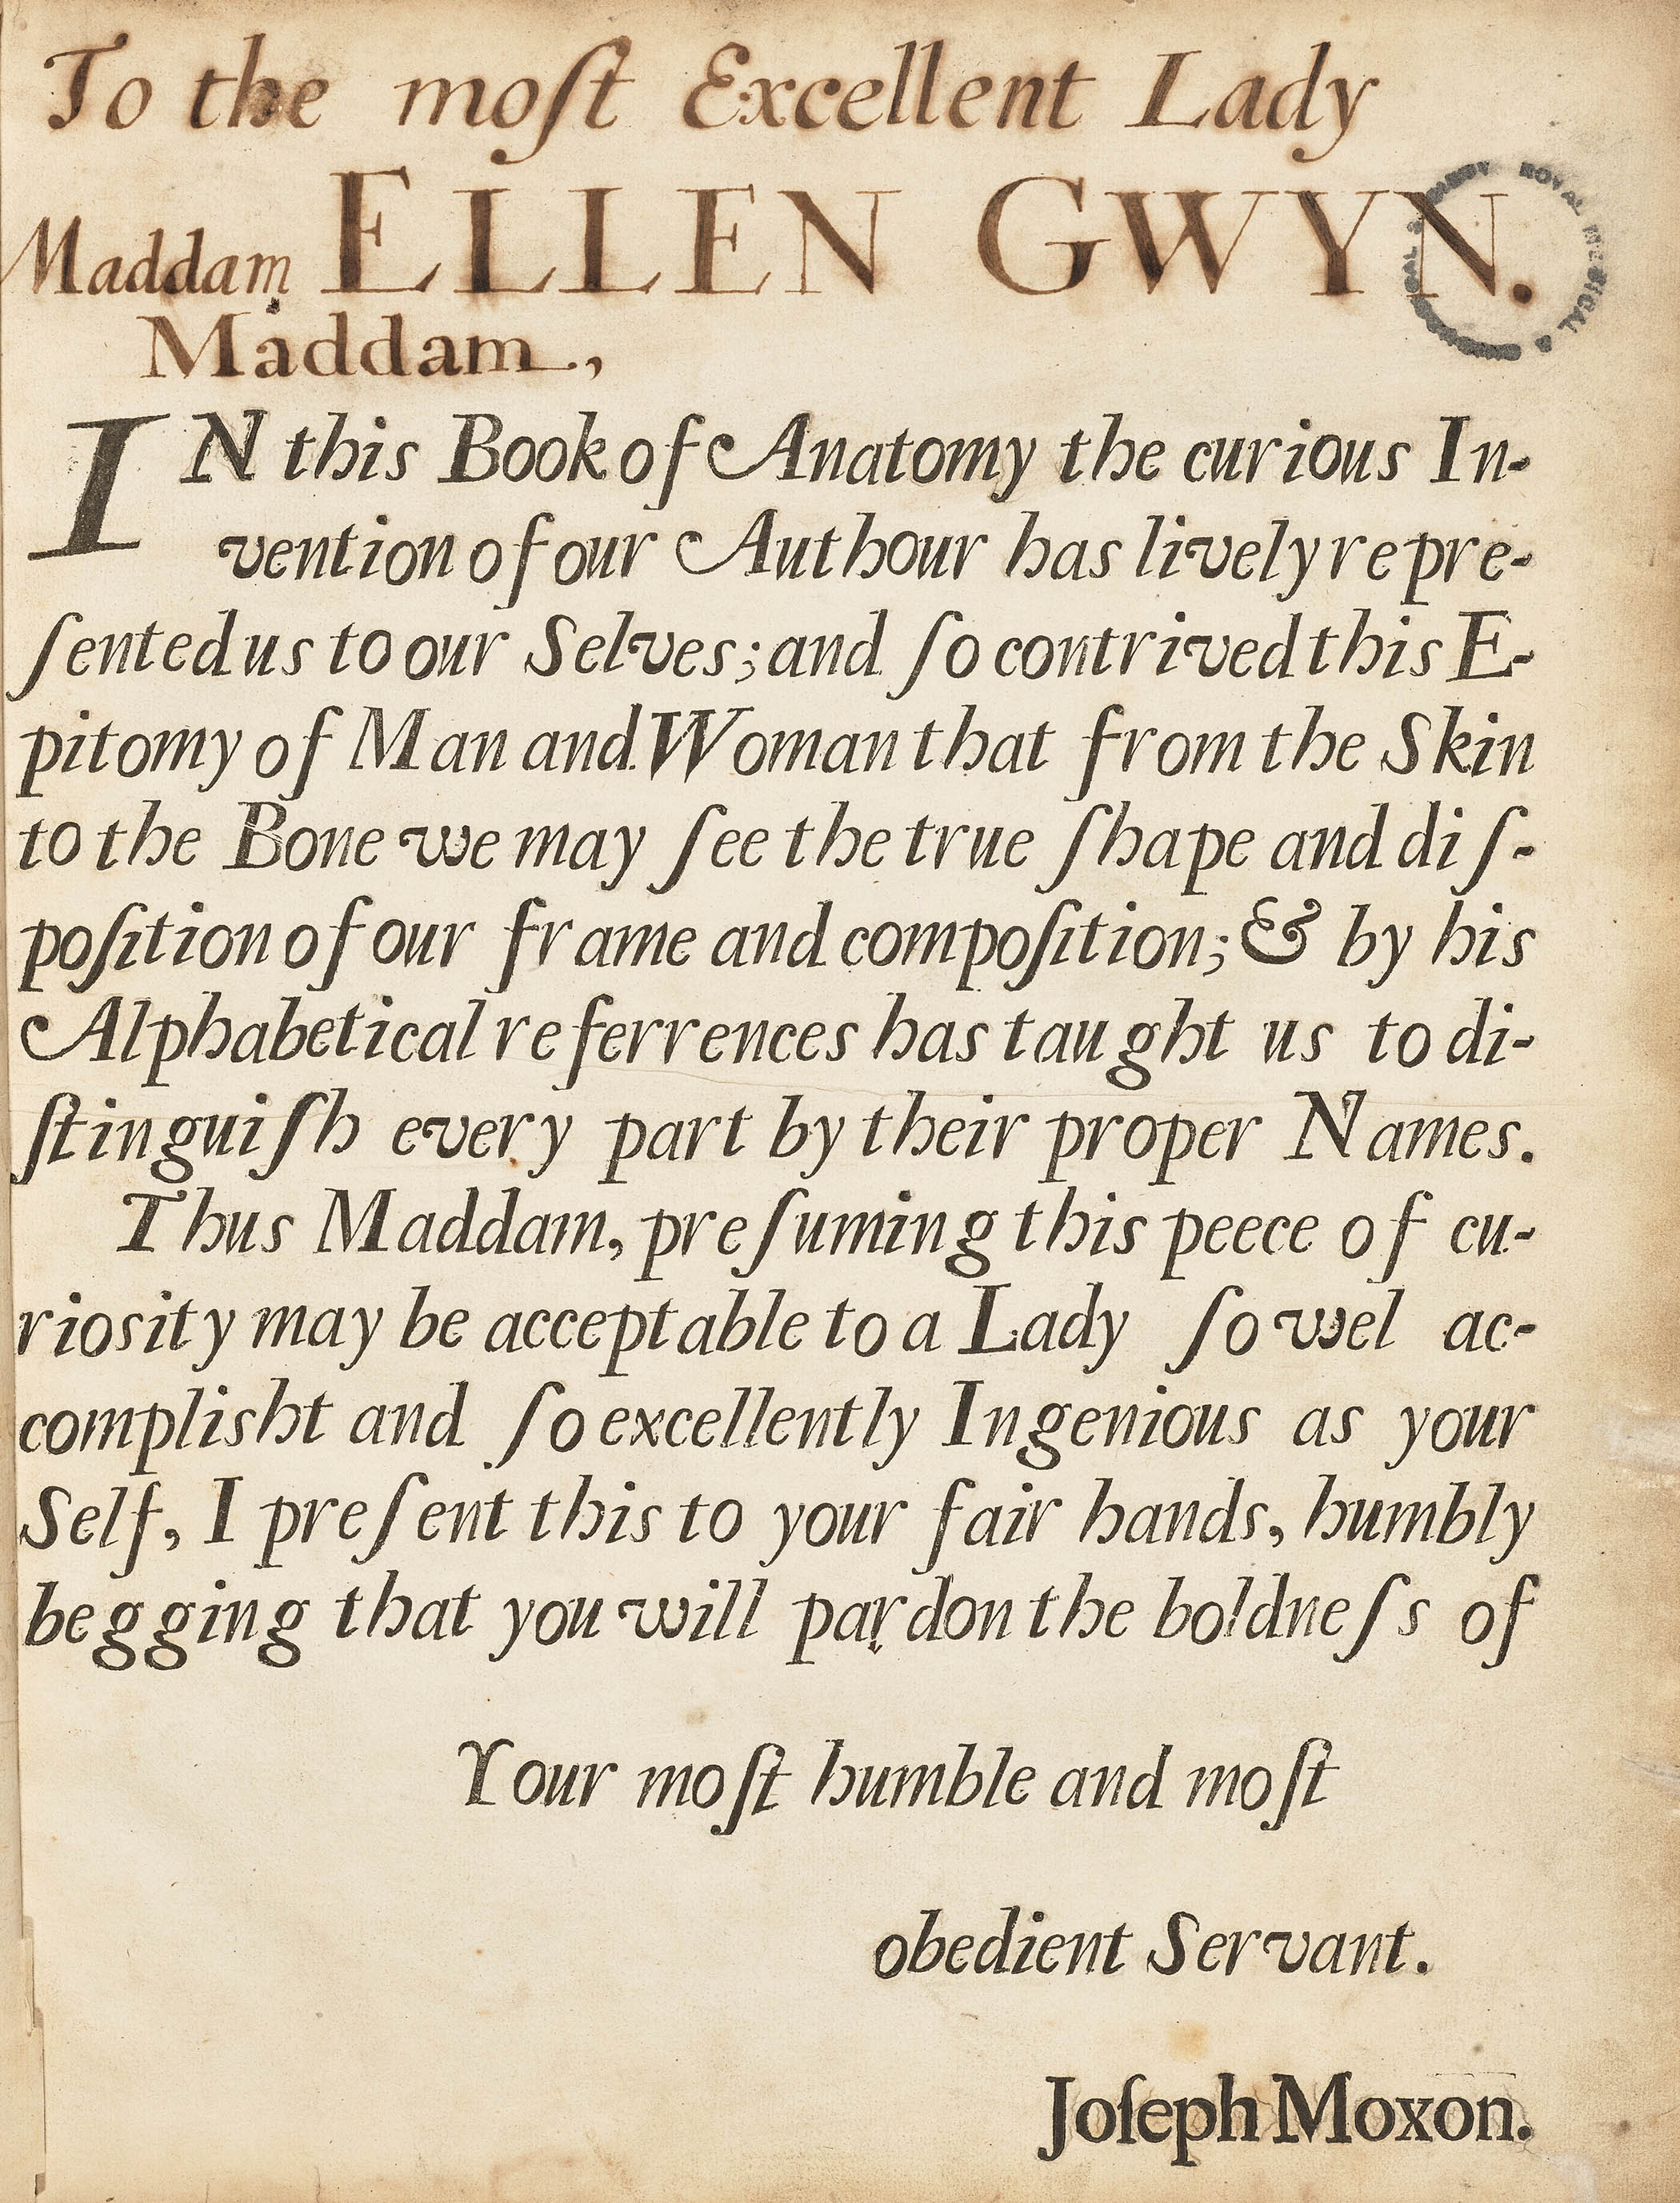 To the moſt Excellent Lady
Maddam ELLEN GWYN.
Maddam.,
IN this Book of Anatomy the curious In-
vention of our Authour has lively repre-
ſented us to our Selves; and ſo contrived this E-
pitomy of Man and Woman that from the Skin
to the Bone we may ſee the true ſhape and diſ-
poſition of our frame and compoſition; & by his
Alphabetical referrences has taught us to di-
ſtinguiſh every part by their proper Names.
Thus Maddam, preſuming this peece of cu-
riosity may be acceptable to a Lady ſo wel ac-
complisht and ſo excellently Ingenious as your
Self, I preſent this to your fair hands, humbly
begging that you will pardon the boldneſs of
Your moſt humble and moſt
obedient Servant.
Joſeph Moxon.
ROYAL MEDICAL &